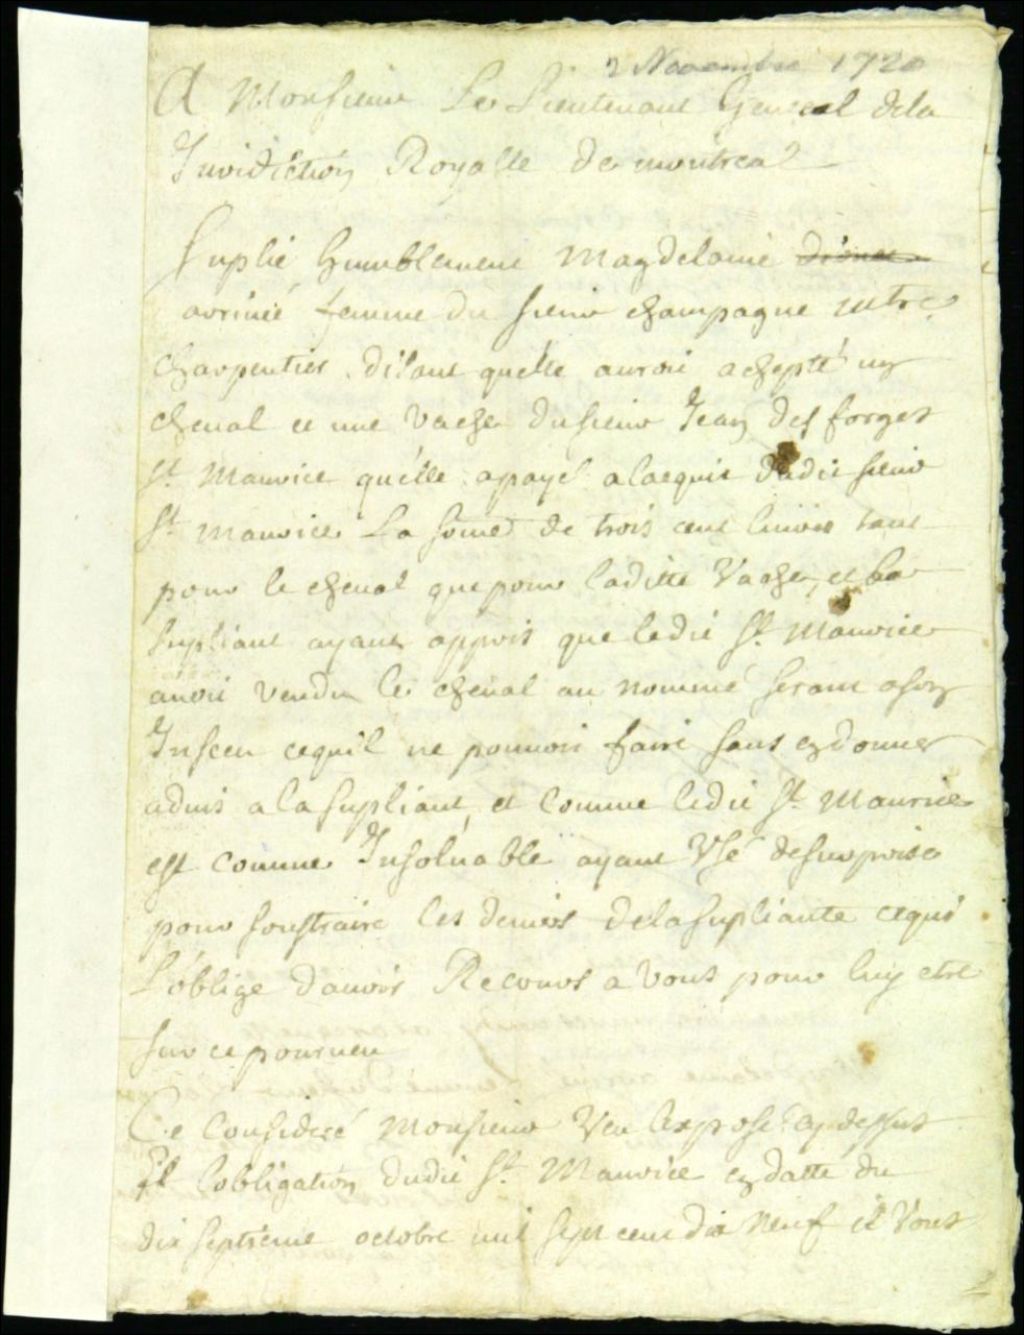 2 Novembre 1720
A Monsieur Le Lieutenant General dela
Juridiction Royalle de montreal
Suplie humblement Magdelaine
femme du sieur champagne mtre
charpentier disant quelle auroit achepté un
cheval et une vache dusieur Jean desforges
St. Maurice quelle apayé alacquit dudit sieur
St. maurice La some de trois cent livres tant
pour le cheval que pour laditte vache, et la
supliant ayant appris que ledit St. Maurice
auoit vendu le cheval au nommé serant ason
Insceu cequil ne pouuoit faire sans en donner
aduis a la supliant, et comme ledit St. Maurice
est comme Insoluable ayant Usé desurprise
pour soustraire les deniers delasupliante cequi
L'oblige dauoir Recours a vous pour luy etre
sur ce pourueu
Ce Consideré Monsieur Veu lexposé cy dessus
Et lobligation dudit St. Maurice en datte du
dix septieme octobre mil sept cent dix neuf il vous